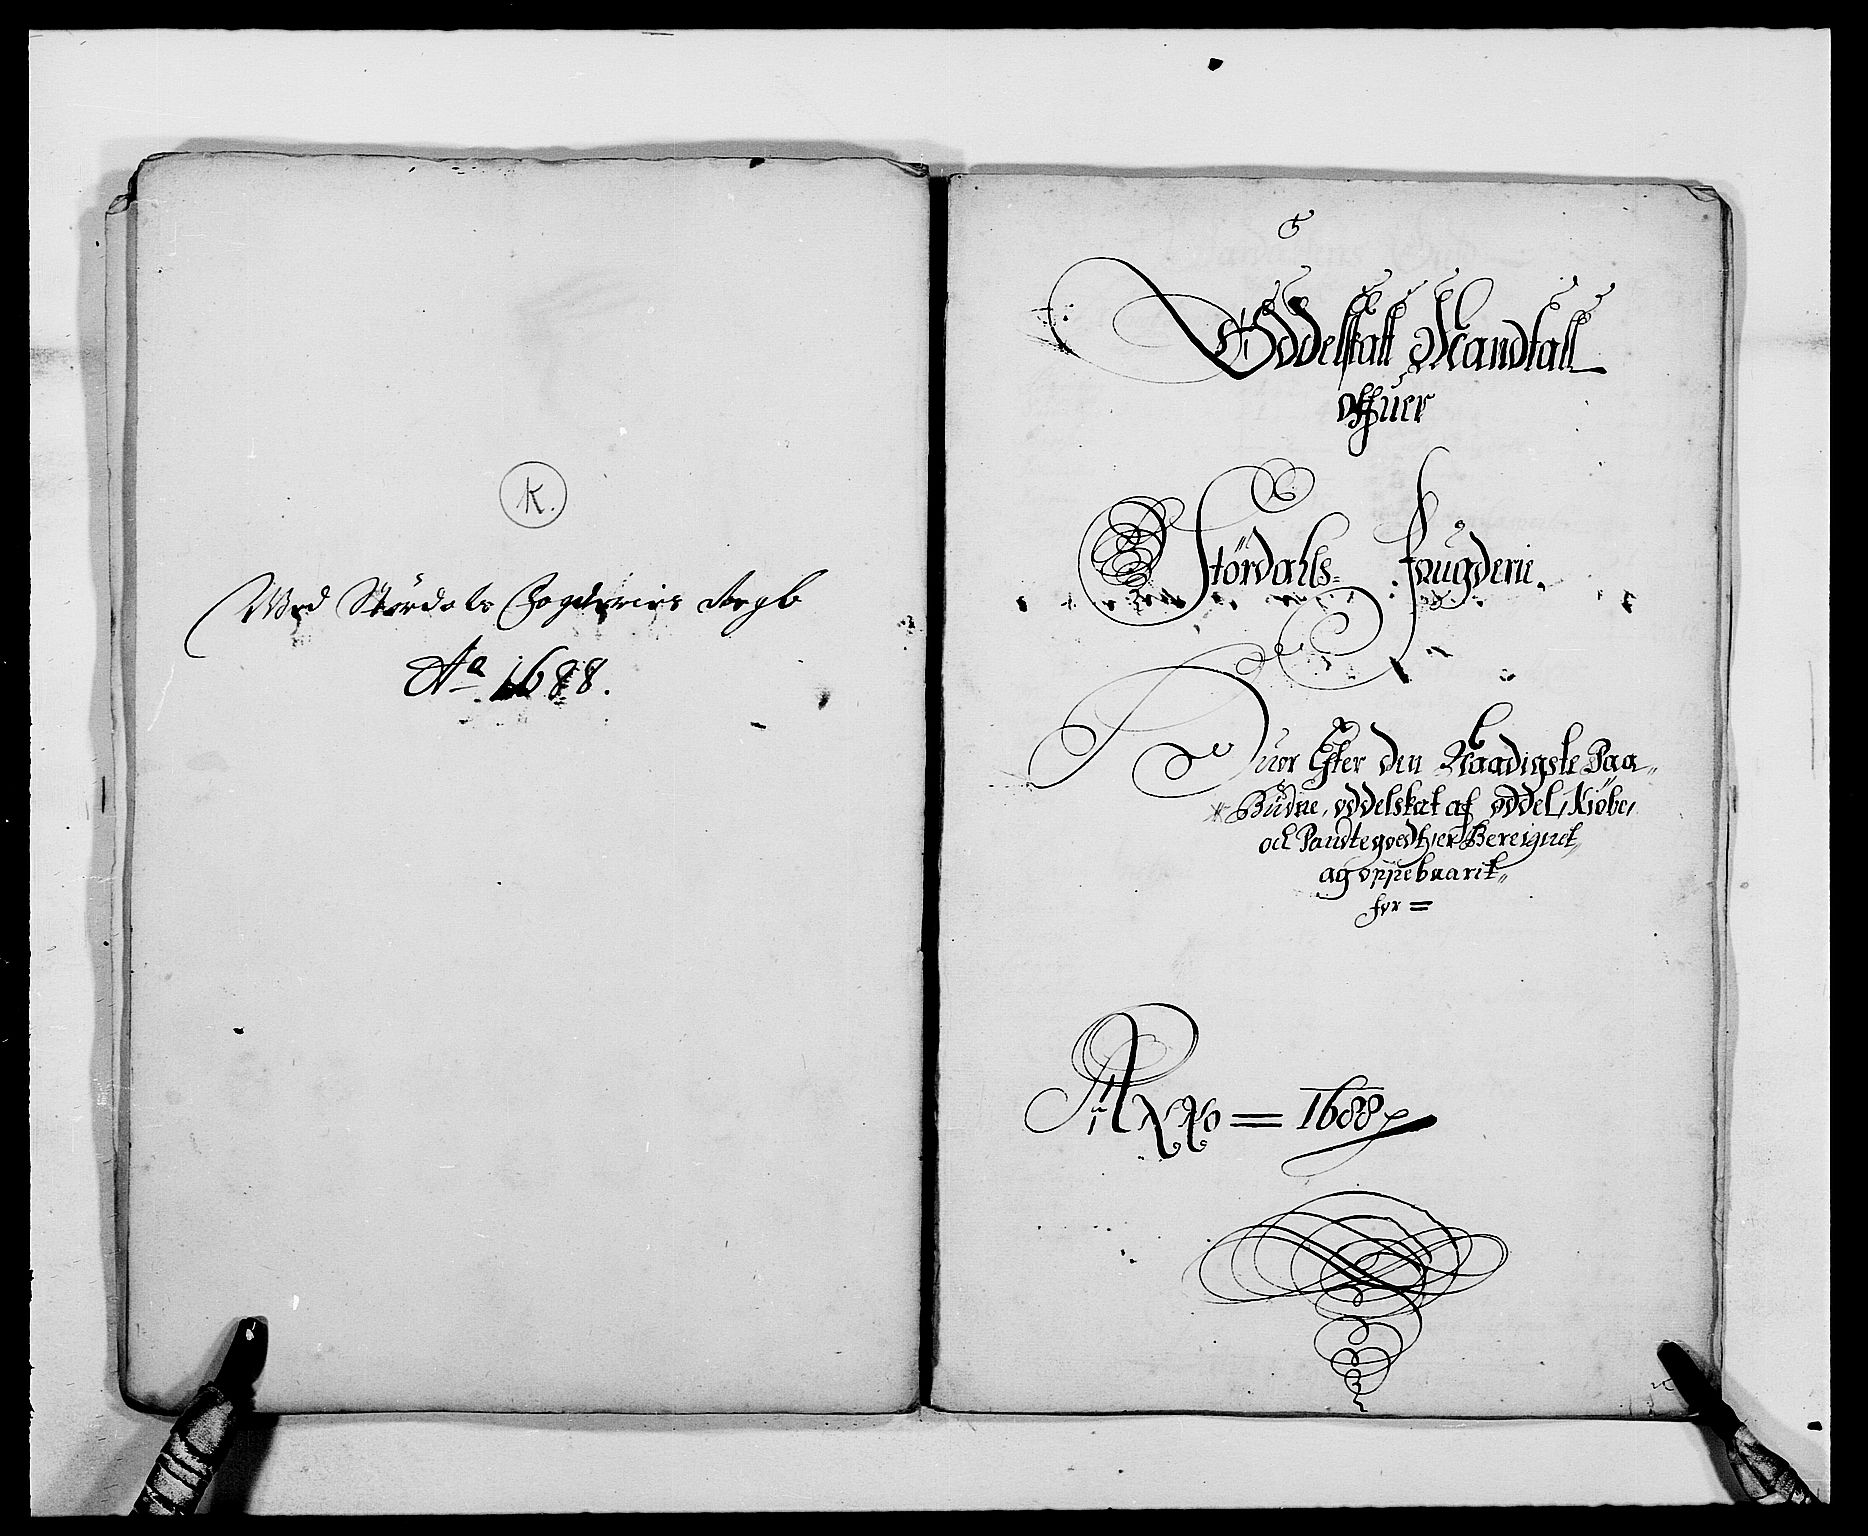 K.
Wed Stördals Fogderies Regb
Aa 1688.
Oddelskatt Mandtall
offuer
Stördahls= faugderie.
Huor Efter den Naadigste Paa„
Budne, oddelskat af oddel, Kiøbe,
och Pandtegoedtz er Bereignet„
og oppebaarit„
for =
ANNo = 1688